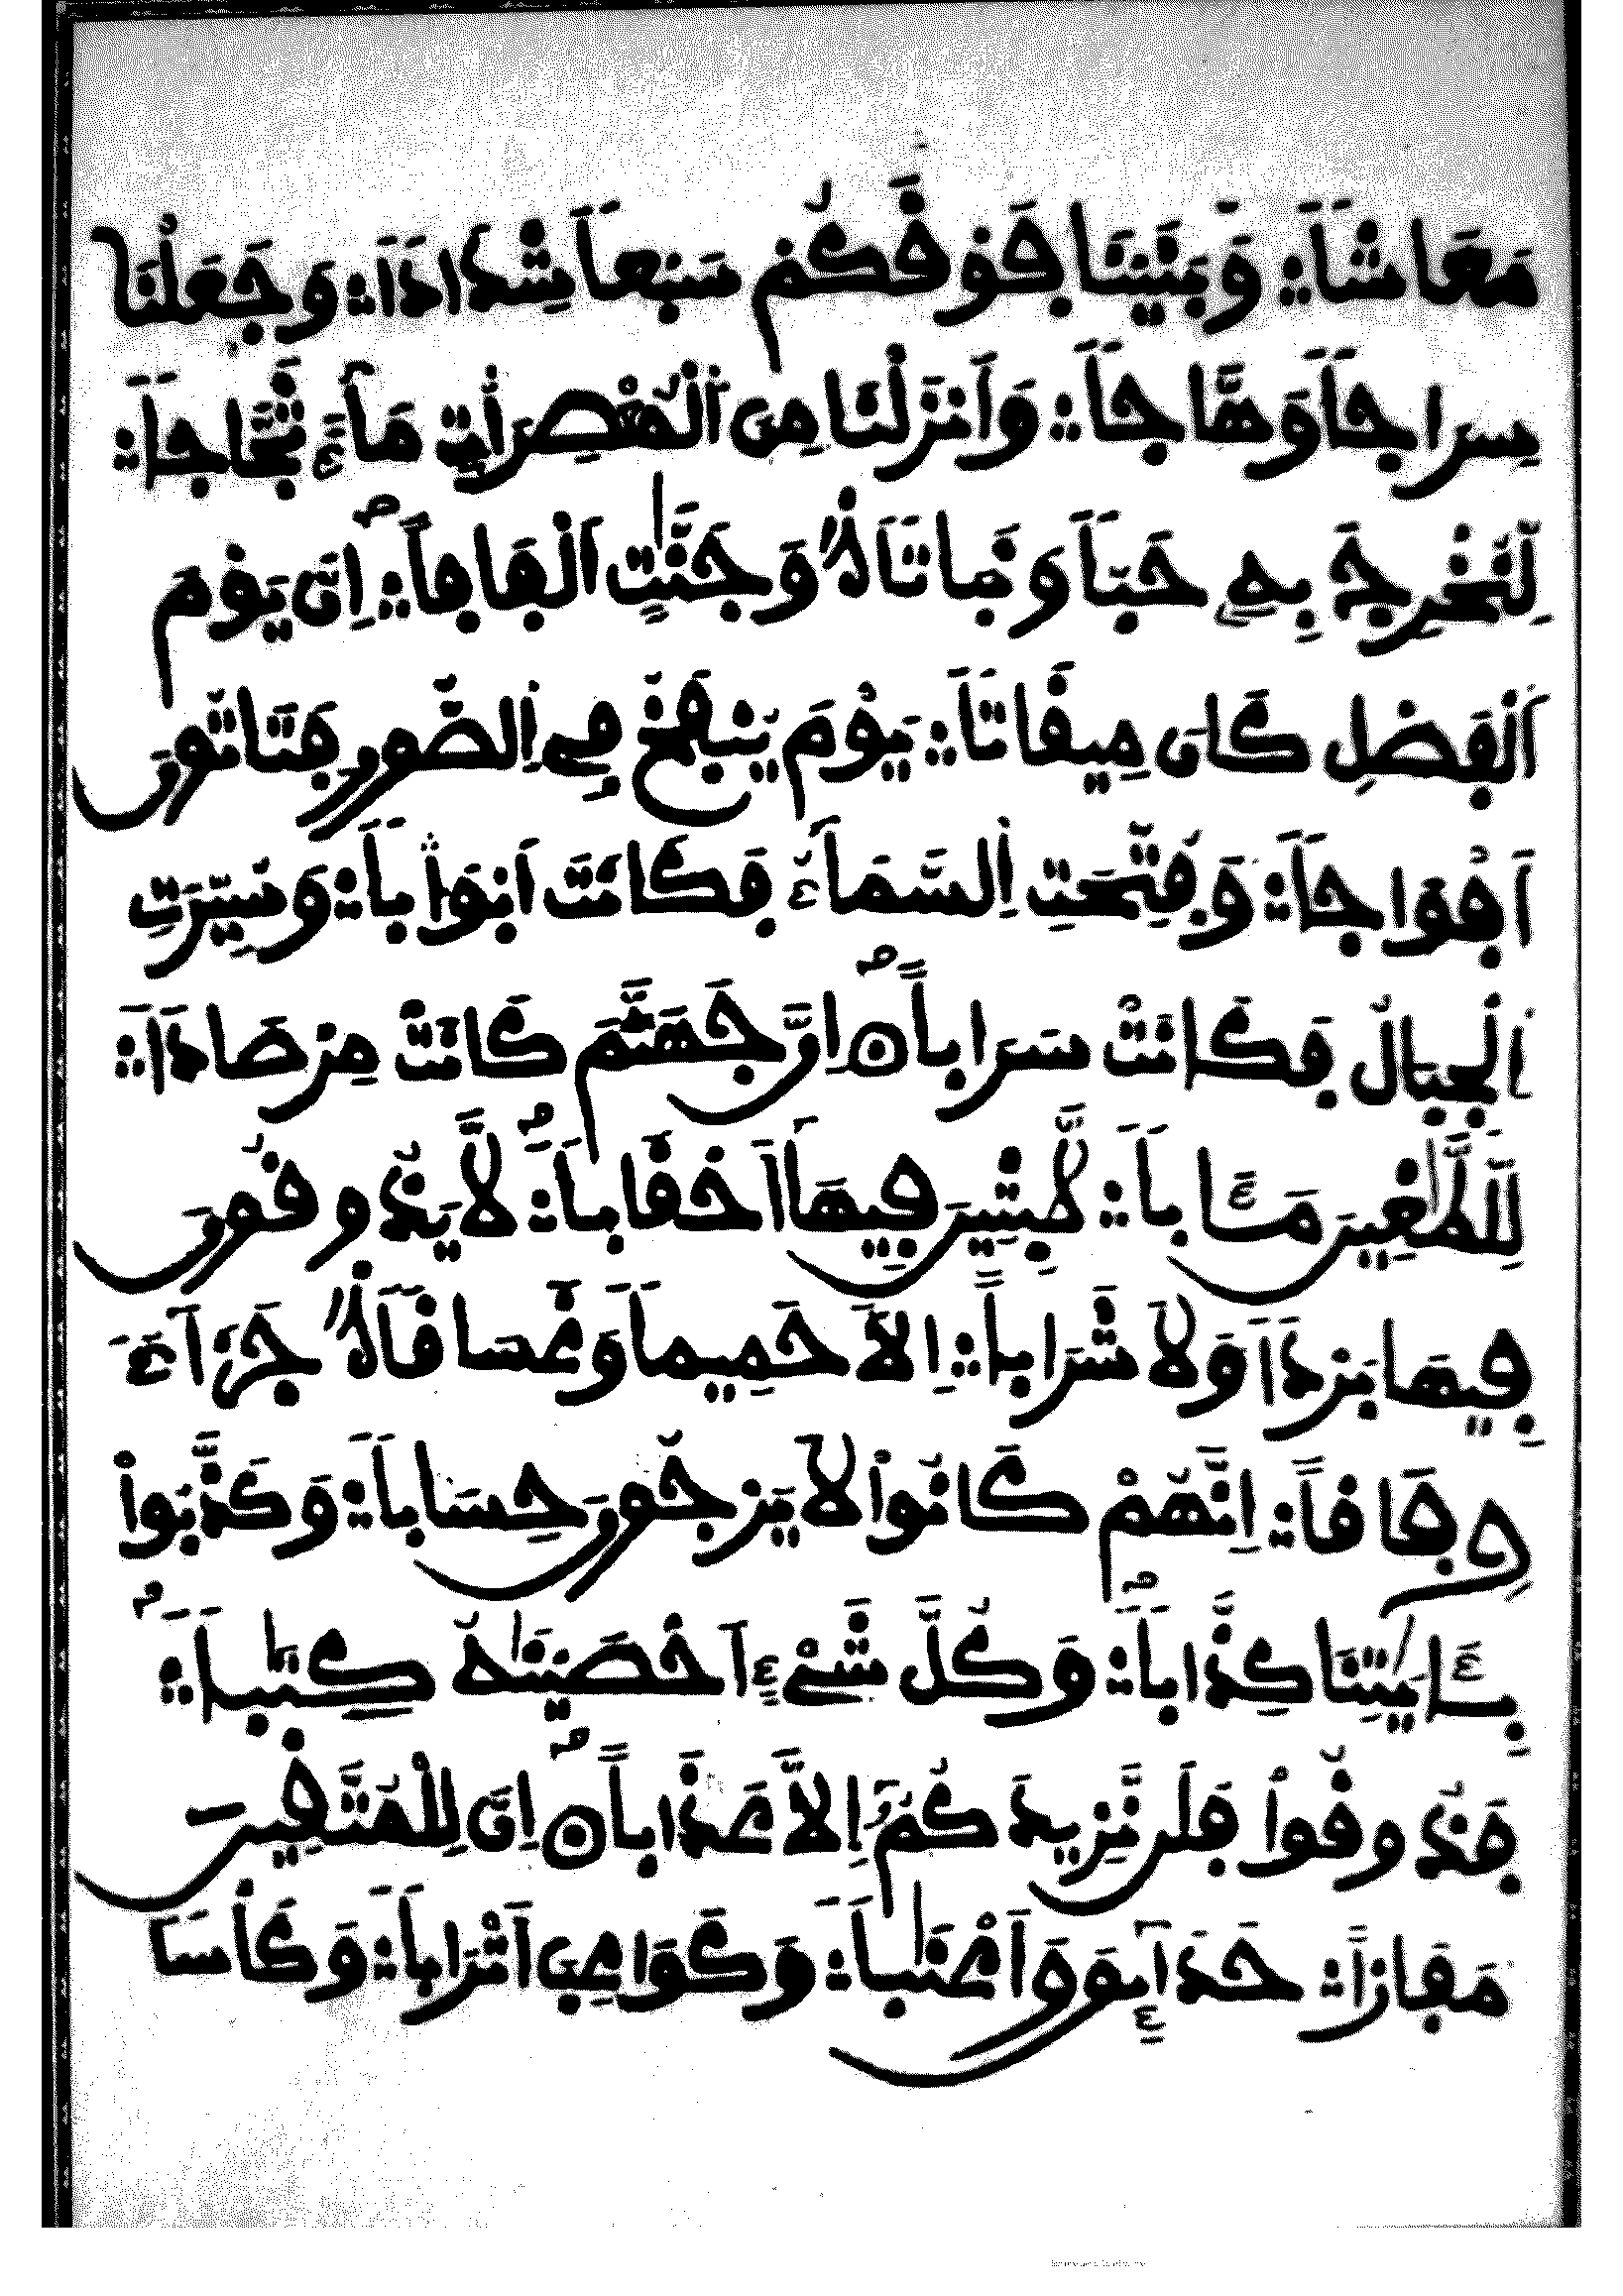 مَعَاشاٗ وَبَنَيْنَا فَوْقَكُمْ سَبْعاٗ شِدَاداٗ وَجَعَلْنَا
سِرَاجاٗ وَهَّاجاٗ وَأَنزَلْنَا مِنَ اَ۬لْمُعْصِرَٰتِ مَآءٗ ثَجَّاجاٗ
لِّنُخْرِجَ بِهِۦ حَبّاٗ وَنَبَاتاٗ وَجَنَّٰتٍ اَلْفَافاً اِنَّ يَوْمَ
اَ۬لْفَصْلِ كَانَ مِيقَاتاٗ يَوْمَ يُنفَخُ فِے اِ۬لصُّورِ فَتَاتُونَ
أَفْوَاجاٗ وَفُتِّحَتِ اِ۬لسَّمَآءُ فَكَانَتَ اَبْوَٰباٗ وَسُيِّرَتِ
اِ۬لْجِبَالُ فَكَانَتْ سَرَاباً اِنَّ جَهَنَّمَ كَانَتْ مِرْصَاداٗ
لِّلطَّٰغِينَ مَـَٔاباٗ لَّٰبِثِينَ فِيهَآ أَحْقَاباٗ لَّا يَذُوقُونَ
فِيهَا بَرْداٗ وَلَا شَرَاباً اِلَّا حَمِيماٗ وَغَسَاقاٗ جَزَآءٗ
وِفَاقاً اِنَّهُمْ كَانُواْ لَا يَرْجُونَ حِسَاباٗ وَكَذَّبُواْ
بِـَٔايَٰتِنَا كِذَّاباٗ وَكُلَّ شَےْءٍ اَحْصَيْنَٰهُ كِتَٰباٗ
فَذُوقُواْ فَلَن نَّزِيدَكُمُۥٓ إِلَّا عَذَاباً اِنَّ لِلْمُتَّقِينَ
مَفَازاً حَدَآئِقَ وَأَعْنَٰباٗ وَكَوَاعِبَ أَتْرَاباٗ وَكَأْساٗ